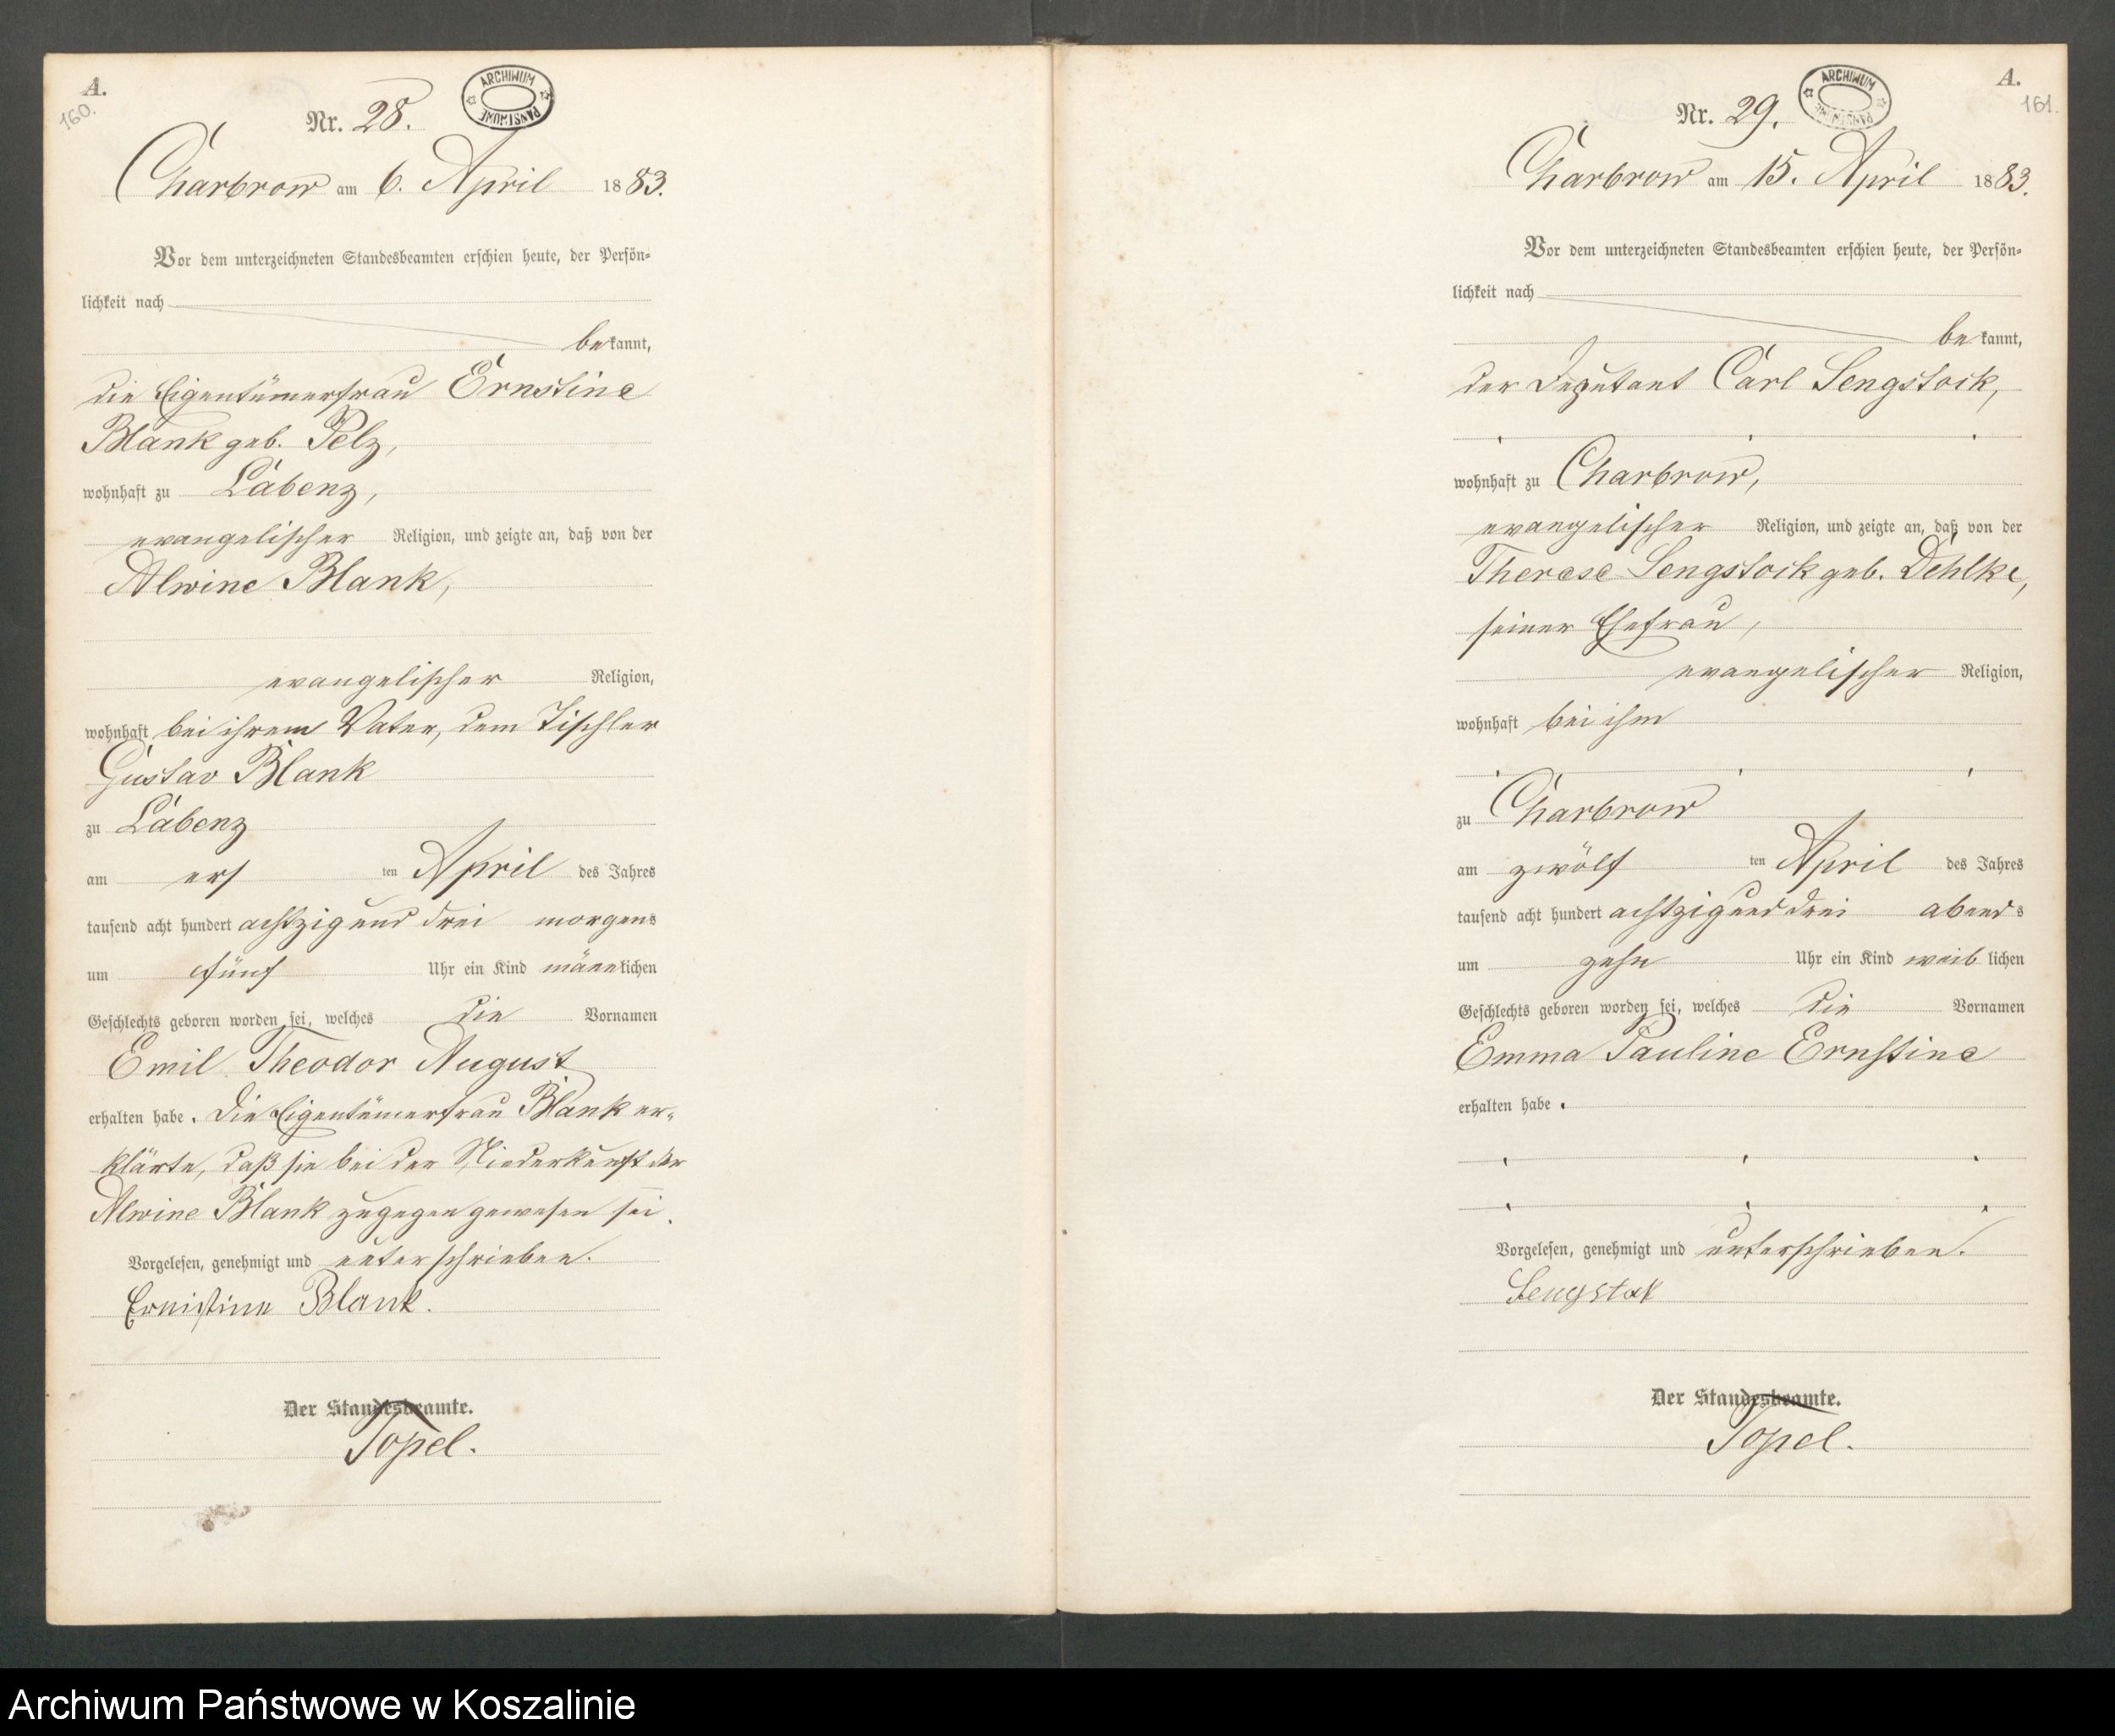 A.
160.
Nr. 28.
ARCHIWUM PAŃSTWOWE
Charbrow am 6. April 1883.
Vor dem unterzeichneten Standesbeamten erschien heute, der Persön-
lichkeit nach
bekannt,
die Eigentümerfrau Ernstine
Blank geb. Pelz,
wohnhaft zu Labenz,
evangelischer Religion, und zeigte an, daß von der
Alwine Blank,
evangelischer Religion,
wohnhaft bei ihrem Vater, dem Tischler
Gustav Blank
zu Labenz
am ersten April des Jahres
tausend acht hundert achtzig und drei morgens
um fünf Uhr ein Kind männlichen
Geschlechts geboren worden sei, welches die Vornamen
Emil Theodor August
erhalten habe. Die Eigentümerfrau Blank er-
klärte, daß sie bei der Niederkunft der
Alwine Blank zugegen gewesen sei.
Vorgelesen, genehmigt und unterschrieben.
Ernistine Blank.
Der Standesbeamte.
Topel.
A.
161.
Nr. 29.
ARCHIWUM PAŃSTWOWE
Charbrow am 15. April 1883.
Vor dem unterzeichneten Standesbeamten erschien heute, der Persön-
lichkeit nach
bekannt,
der Deputant Carl Sengstock,
wohnhaft zu Charbrow,
evangelischer Religion, und zeigte an, daß von der
Therese Sengstock geb. Dehlke,
seiner Ehefrau,
evangelischer Religion,
wohnhaft bei ihm
zu Charbrow
am zwölften April des Jahres
tausend acht hundert achtzig und drei abends
um zehn Uhr ein Kind weiblichen
Geschlechts geboren worden sei, welches die Vornamen
Emma Pauline Ernstine
erhalten habe.
Vorgelesen, genehmigt und unterschrieben.
Sengstok
Der Standesbeamte.
Topel.
Archiwum Państwowe w Koszalinie